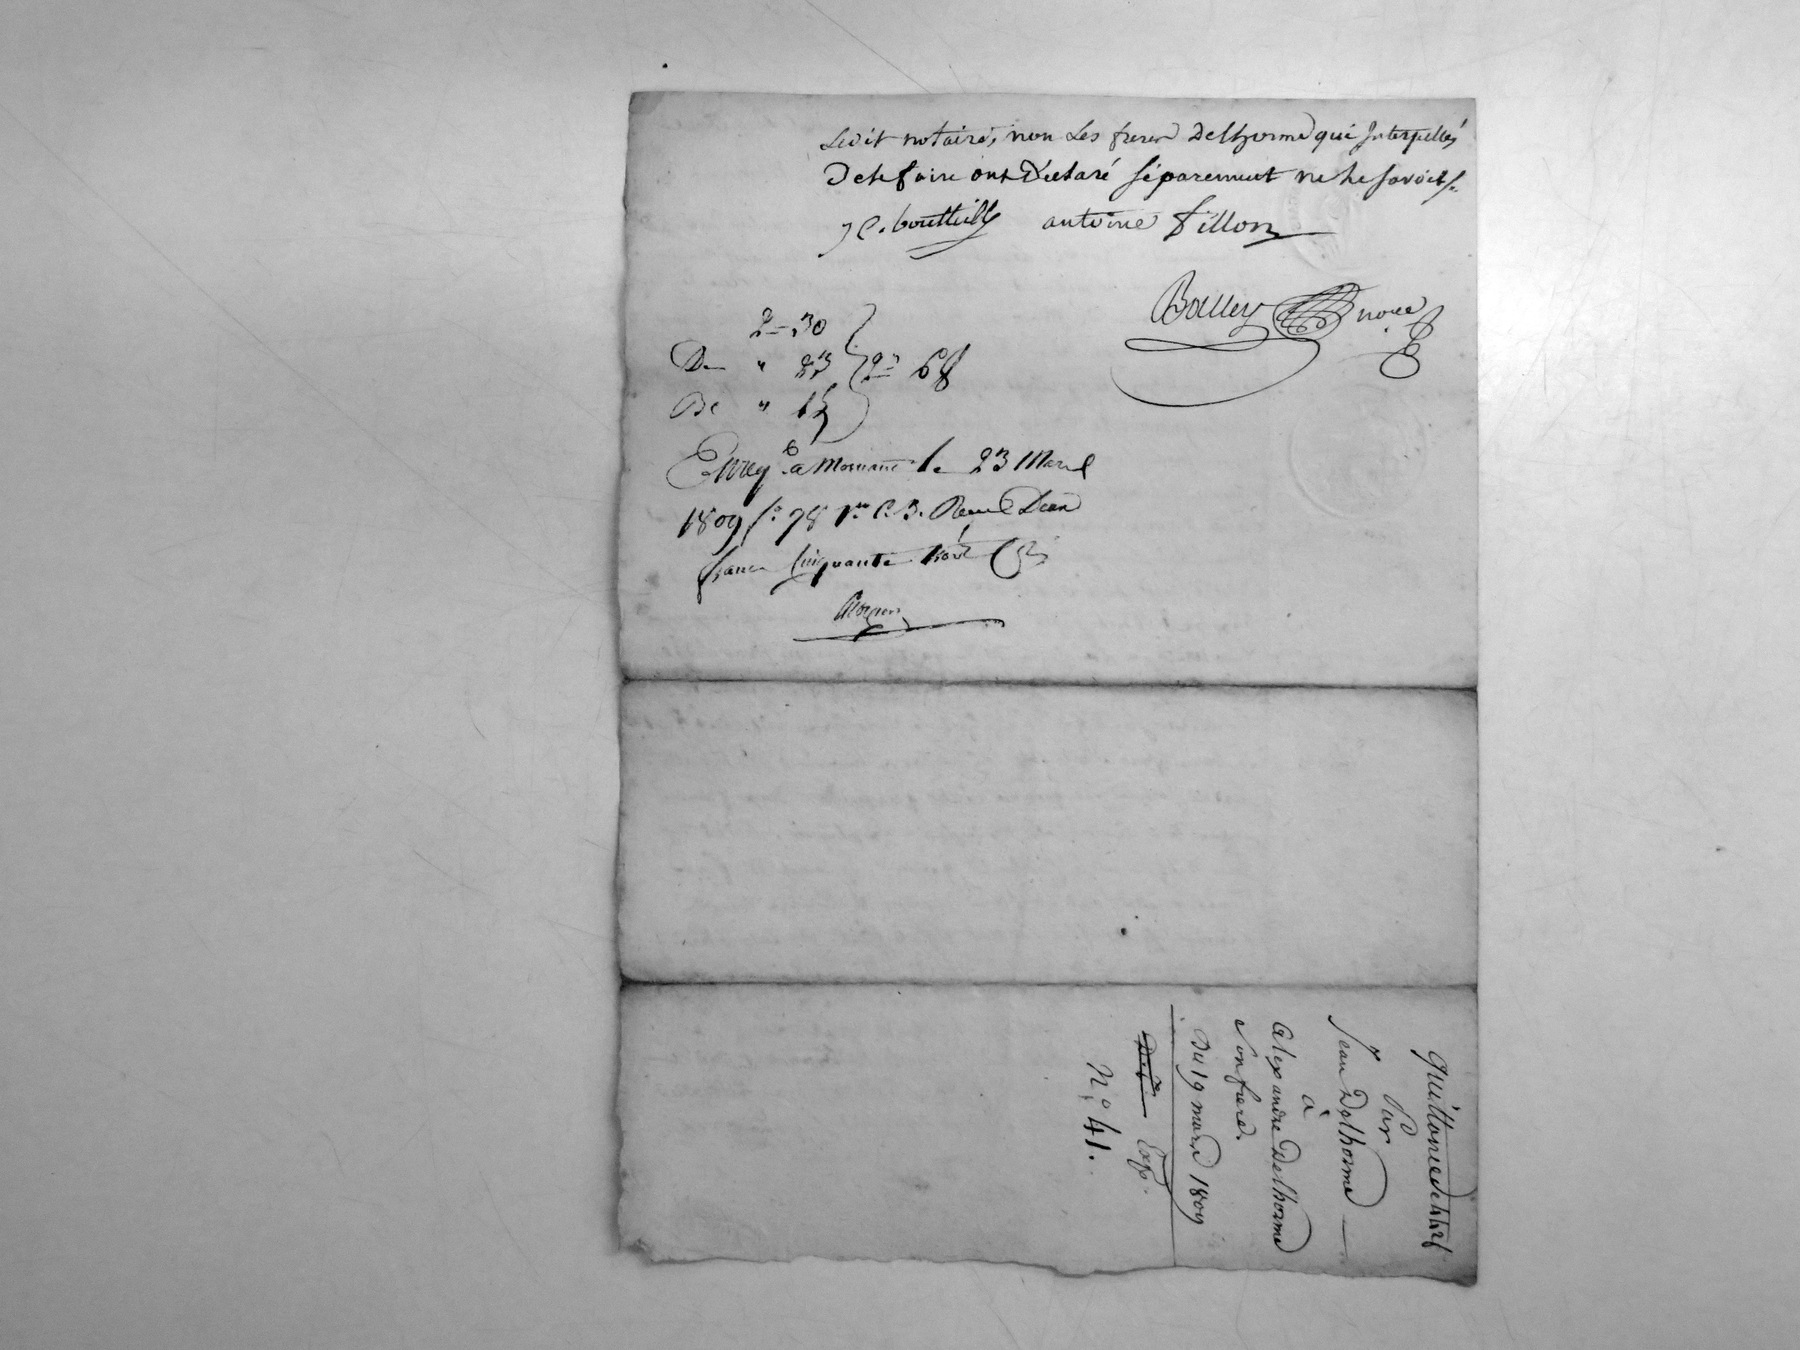 Ledit notaire, non Les freres Delhorme qui Interpellés
De le faire ont Déclaré séparement ne le savoir /.
J C. bouttielle antoine Fillon
Balley nore
2 = 30
Dm " 23 2 = 68
De " 15
Enreg.é a Mornant le 23 Mars
1809 f.o 78 r.o C. 3. Reçu Deux
francs Cinquante trois C.es
quittance de 44 f
Par
Jean Delhorme
a
alexandre Delhorme
son frere.
Du 19 mars 1809
Exp.
N.o 41.